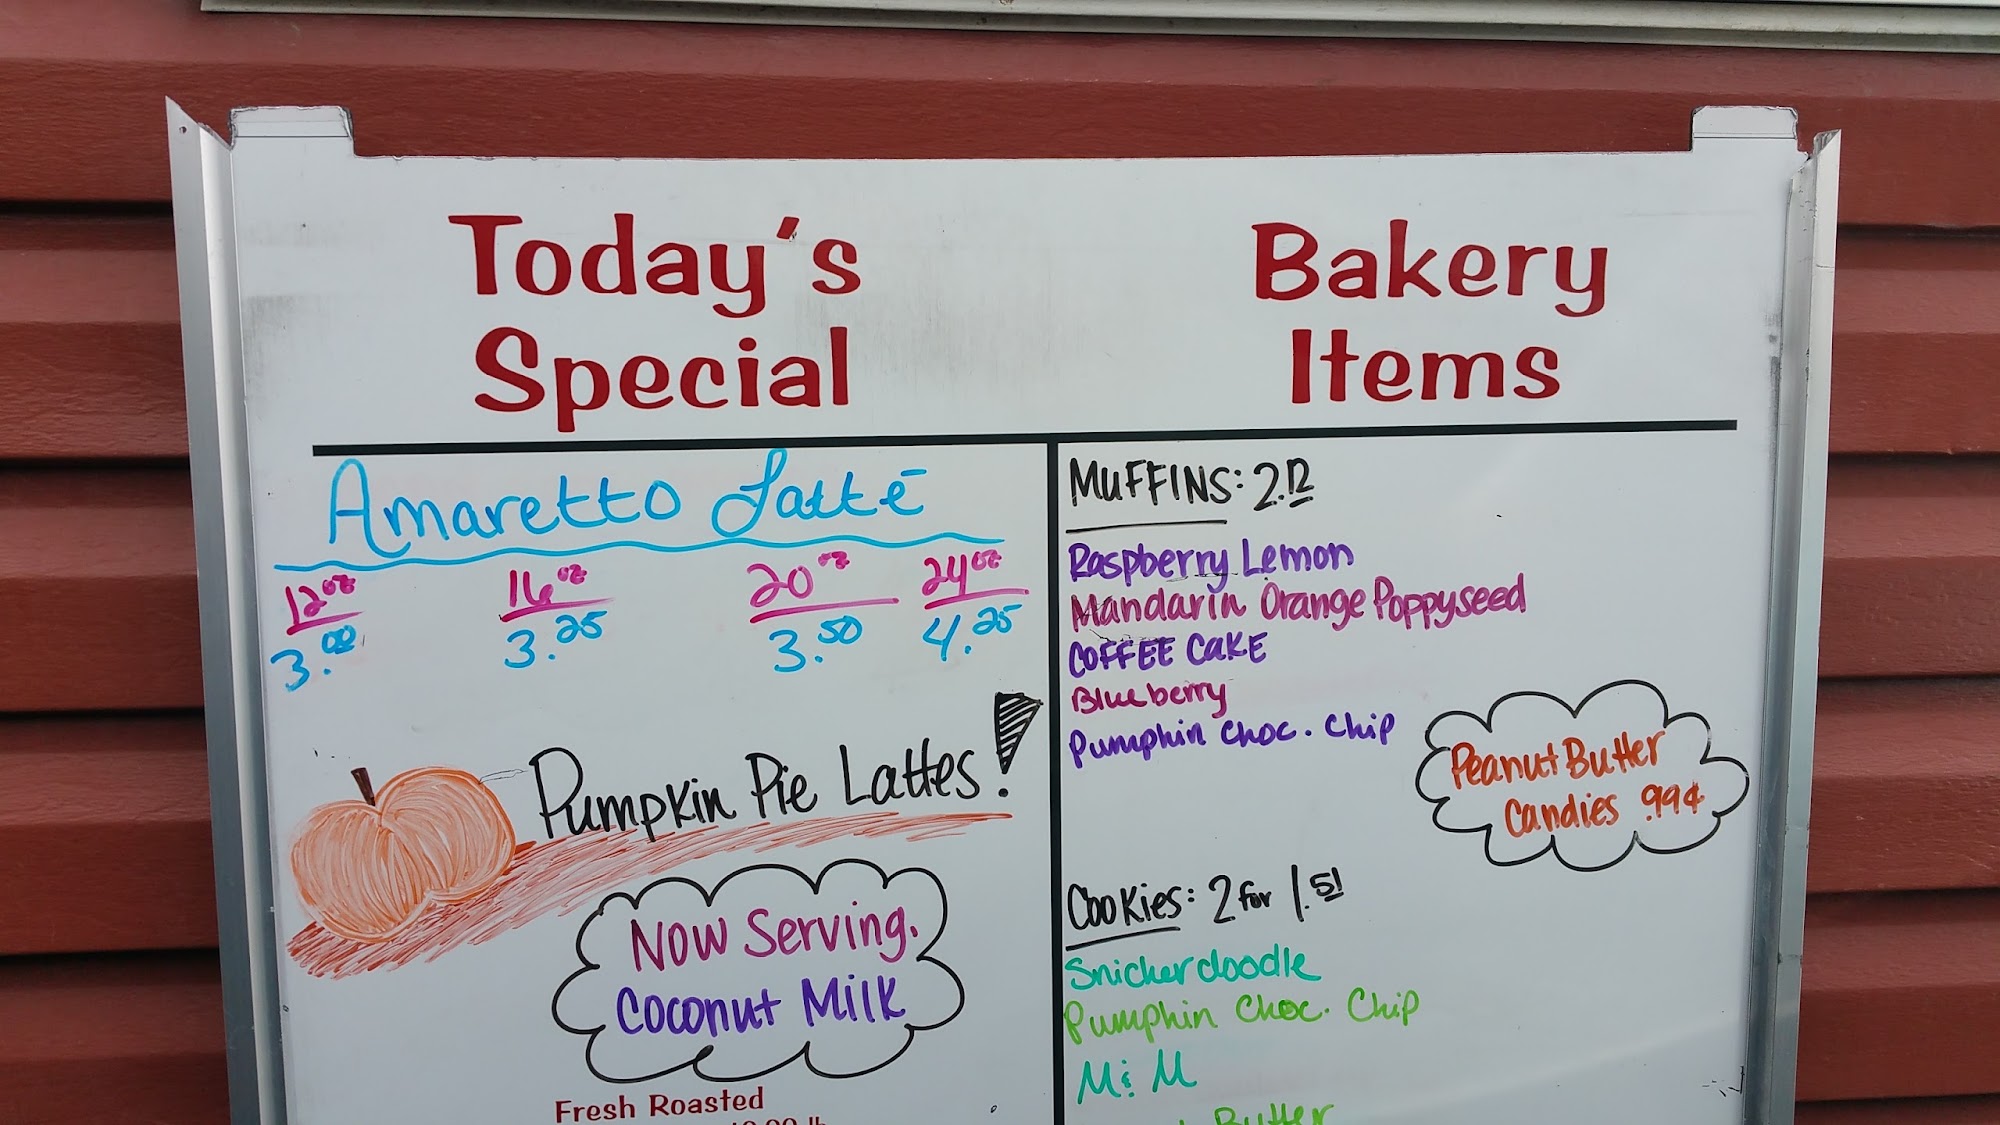 Today's
Special
Amaretto Latté
12oz 16oz 20oz 24oz
3.00 3.25 3.50 4.25
Pumpkin Pie Lattes!
Now Serving.
Coconut Milk
Fresh Roasted
Bakery
Items
MUFFINS: 2.12
Raspberry Lemon
Mandarin Orange Poppyseed
COFFEE CAKE
Blueberry
Pumpkin Choc. Chip
Peanut Butter
Candies .99¢
Cookies: 2 for 1.51
Snickerdoodle
Pumpkin Choc. Chip
M&M
Butter